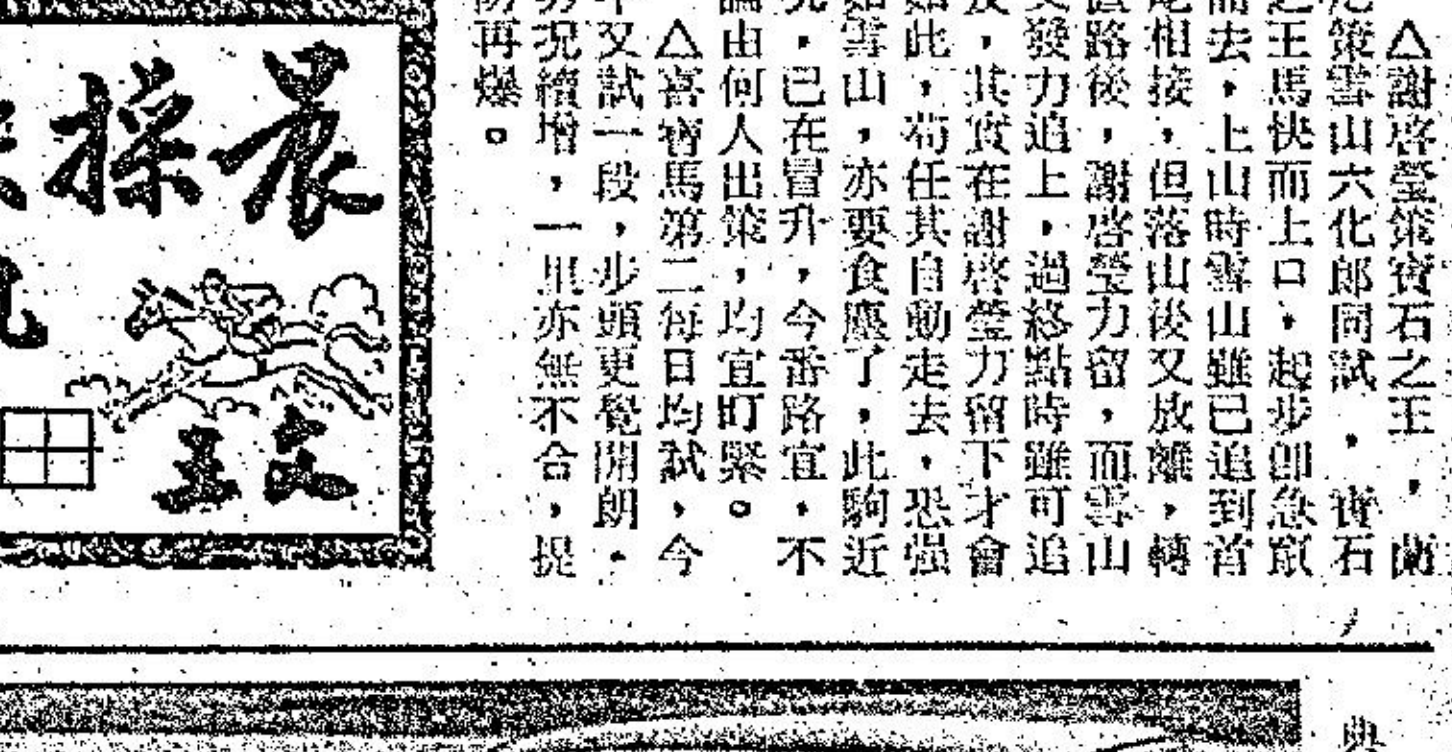 △謝啓瑩策寶石之王，蘭
尼策雪山六化郎同試，寶石
之王馬快而上口，起步卽急竄
而去，上山時雪山雖已追到首
尾相接，但落山後又放離，轉
直路後，謝啓瑩力留，而雪山
又發力追上，過終點時雖可追
及，其實在謝啓瑩力留下才會
如此，苟任其自動走去，恐强
如雪山，亦要食塵了，此駒近
況，已在冒升，今番路宜，不
論由何人出策，均宜盯緊。
△喜寶馬第二每日均試，今
又試一段，步頭更覺開朗，
況續增，一里亦無不合，提
防再爆。
晨採
文王